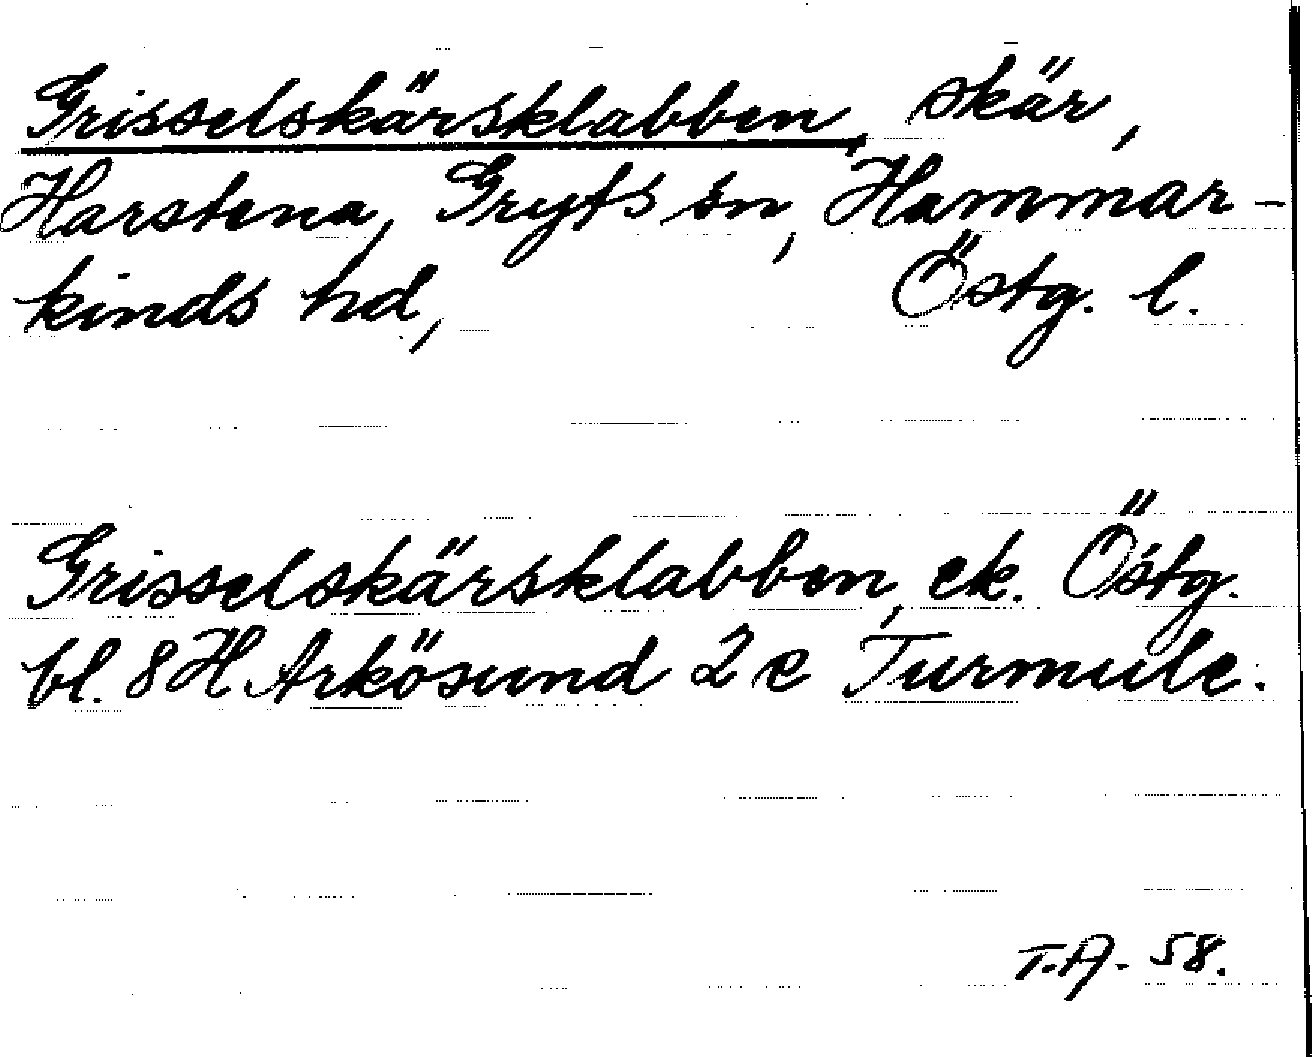 Grisselskärsklabben, skär,
Harstena, Gryts sn, Hammar-
kinds hd, Östg. l.
Grisselskärsklabben, ek. Östg.
bl. 8 H Arkösund 2 e Turmule.
T.A. 58.